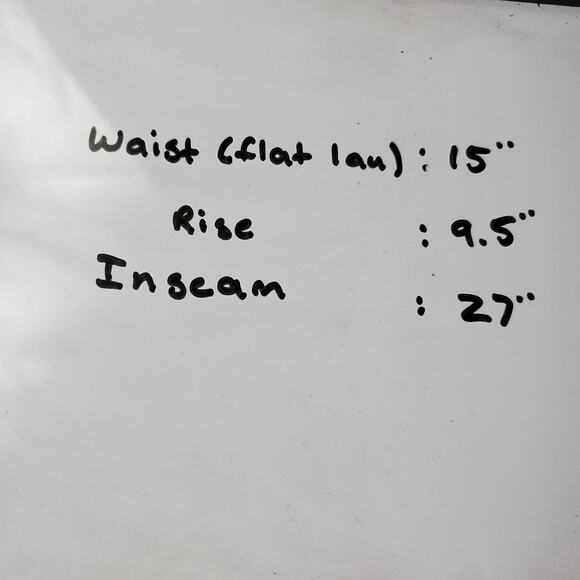 Waist (flat lau) : 15"
Rise : 9.5"
Inseam : 27"